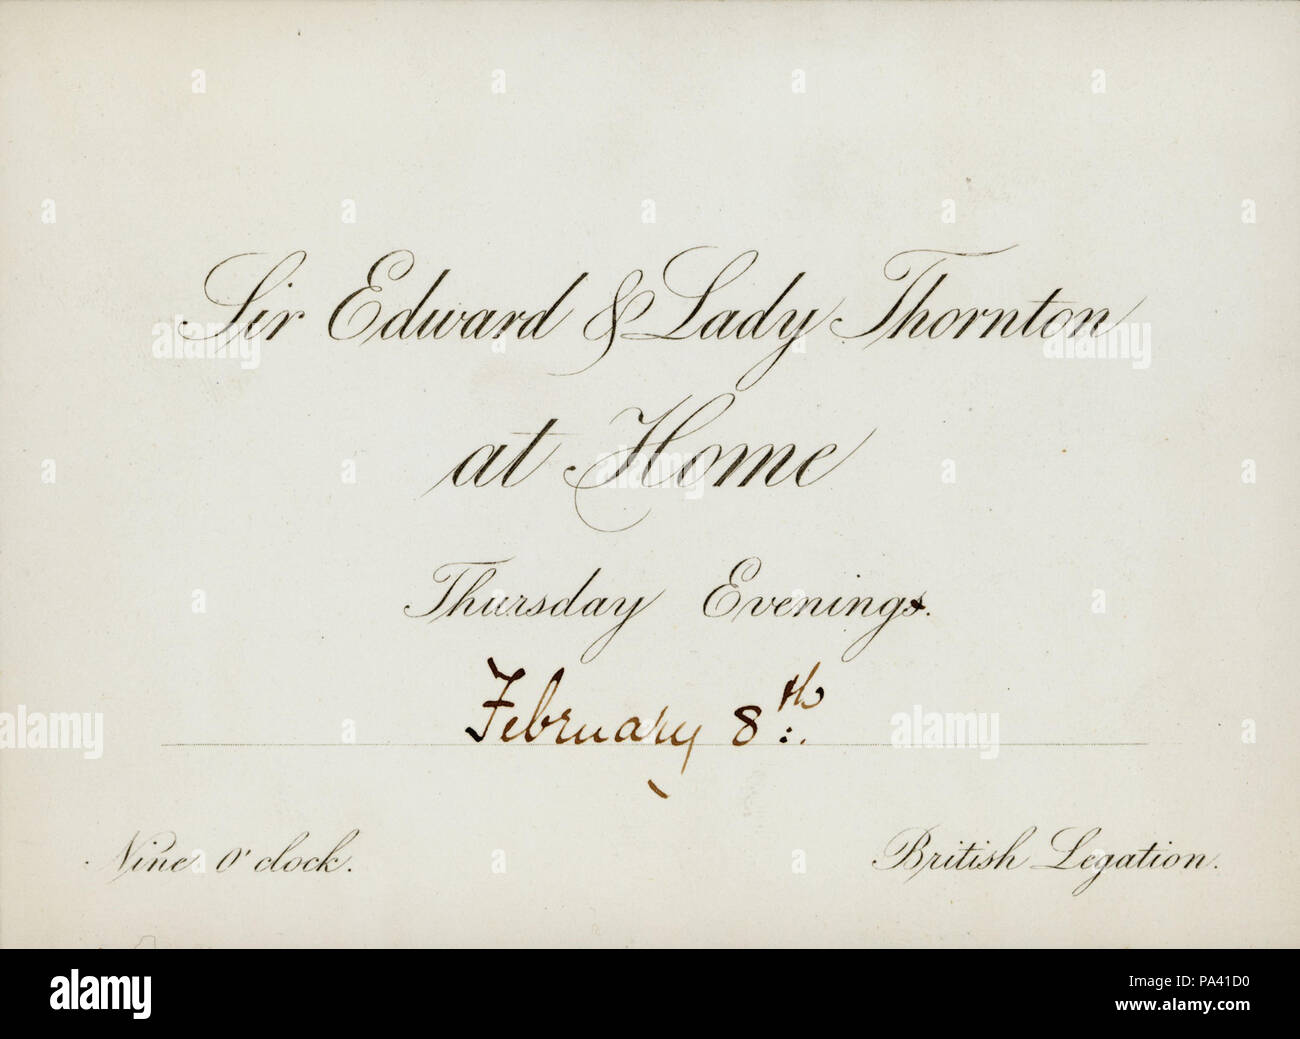 Sir Edward & Lady Thornton
at Home
Thursday Evenings.
February 8th.
Nine O'clock.
British Legation.
alamy
Image ID: PA41D0
www.alamy.com